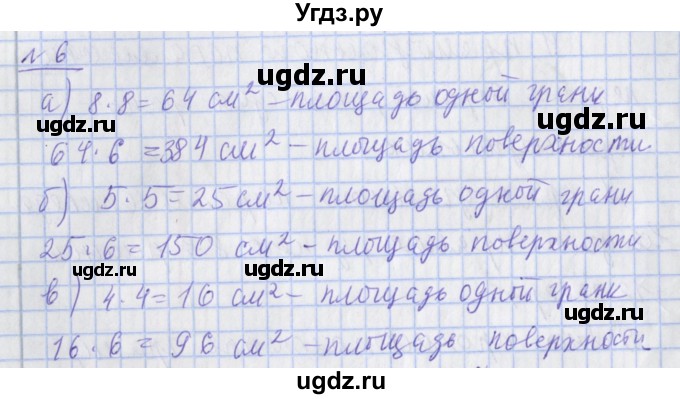 Угдз.ру
№ 6
ugdz.ru ugdz.ru
а) 8·8=64 см² – площадь одной грани
64·6 =384 см² – площадь поверхности
ugdz.ru ugdz.ru
б) 5·5=25 см² – площадь одной грани
25·6 = 150 см² – площадь поверхности
ugdz.ru ugdz.ru
в) 4·4=16 см² – площадь одной грани
16·6 = 96 см² – площадь поверхности
ugdz.ru